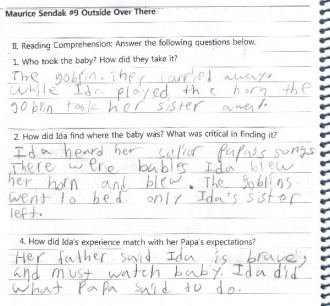 Maurice Sendak #9 Outside Over There
II. Reading Comprehension: Answer the following questions below.
1. Who took the baby? How did they take it?
The goblin. They carried away.
While Ida played the horn the
goblin took her sister away.
2. How did Ida find where the baby was? What was critical in finding it?
Ida heard her Papa's songs
There were babies Ida blew
her horn and blew. The goblins
went to bed. only Ida's sister
left.
4. How did Ida's experience match with her Papa's expectations?
Her father said Ida is brave,
and must watch baby. Ida did
what Papa said to do.